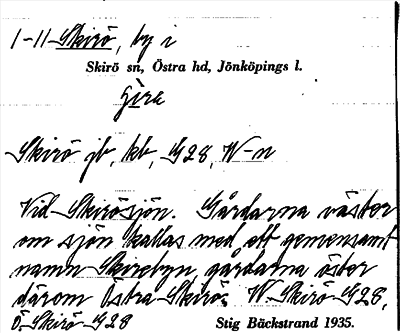 1-11 Skirö, by i
Skirö sn, Östra hd, Jönköpings l.
Skirö jb, kb, G28, W-n
Vid Skirösjön. Gårdarna väster
om sjön kallas med ett gemensamt
namn Skireby, gårdarna öster
därom Östra Skirö. W. Skirö G28,
Ö. Skirö G28
Stig Bäckstrand 1935.